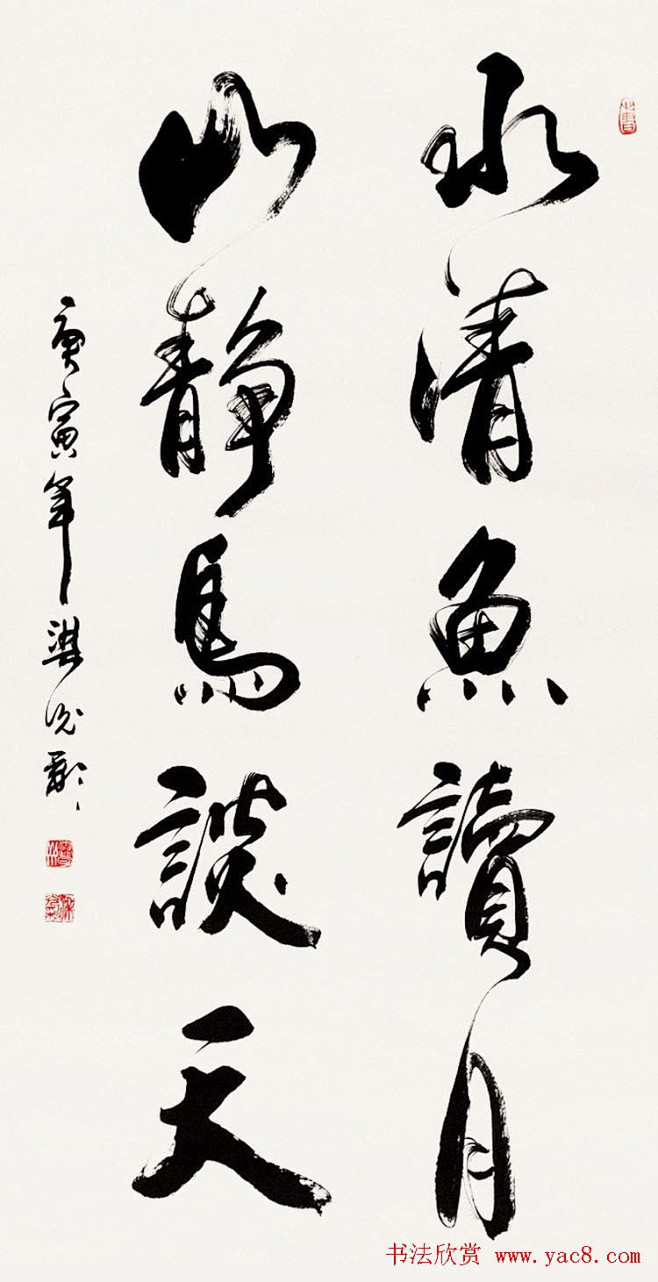 水清魚讀月
山靜鳥談天
庚寅年梁
书法欣赏 www.yac8.com